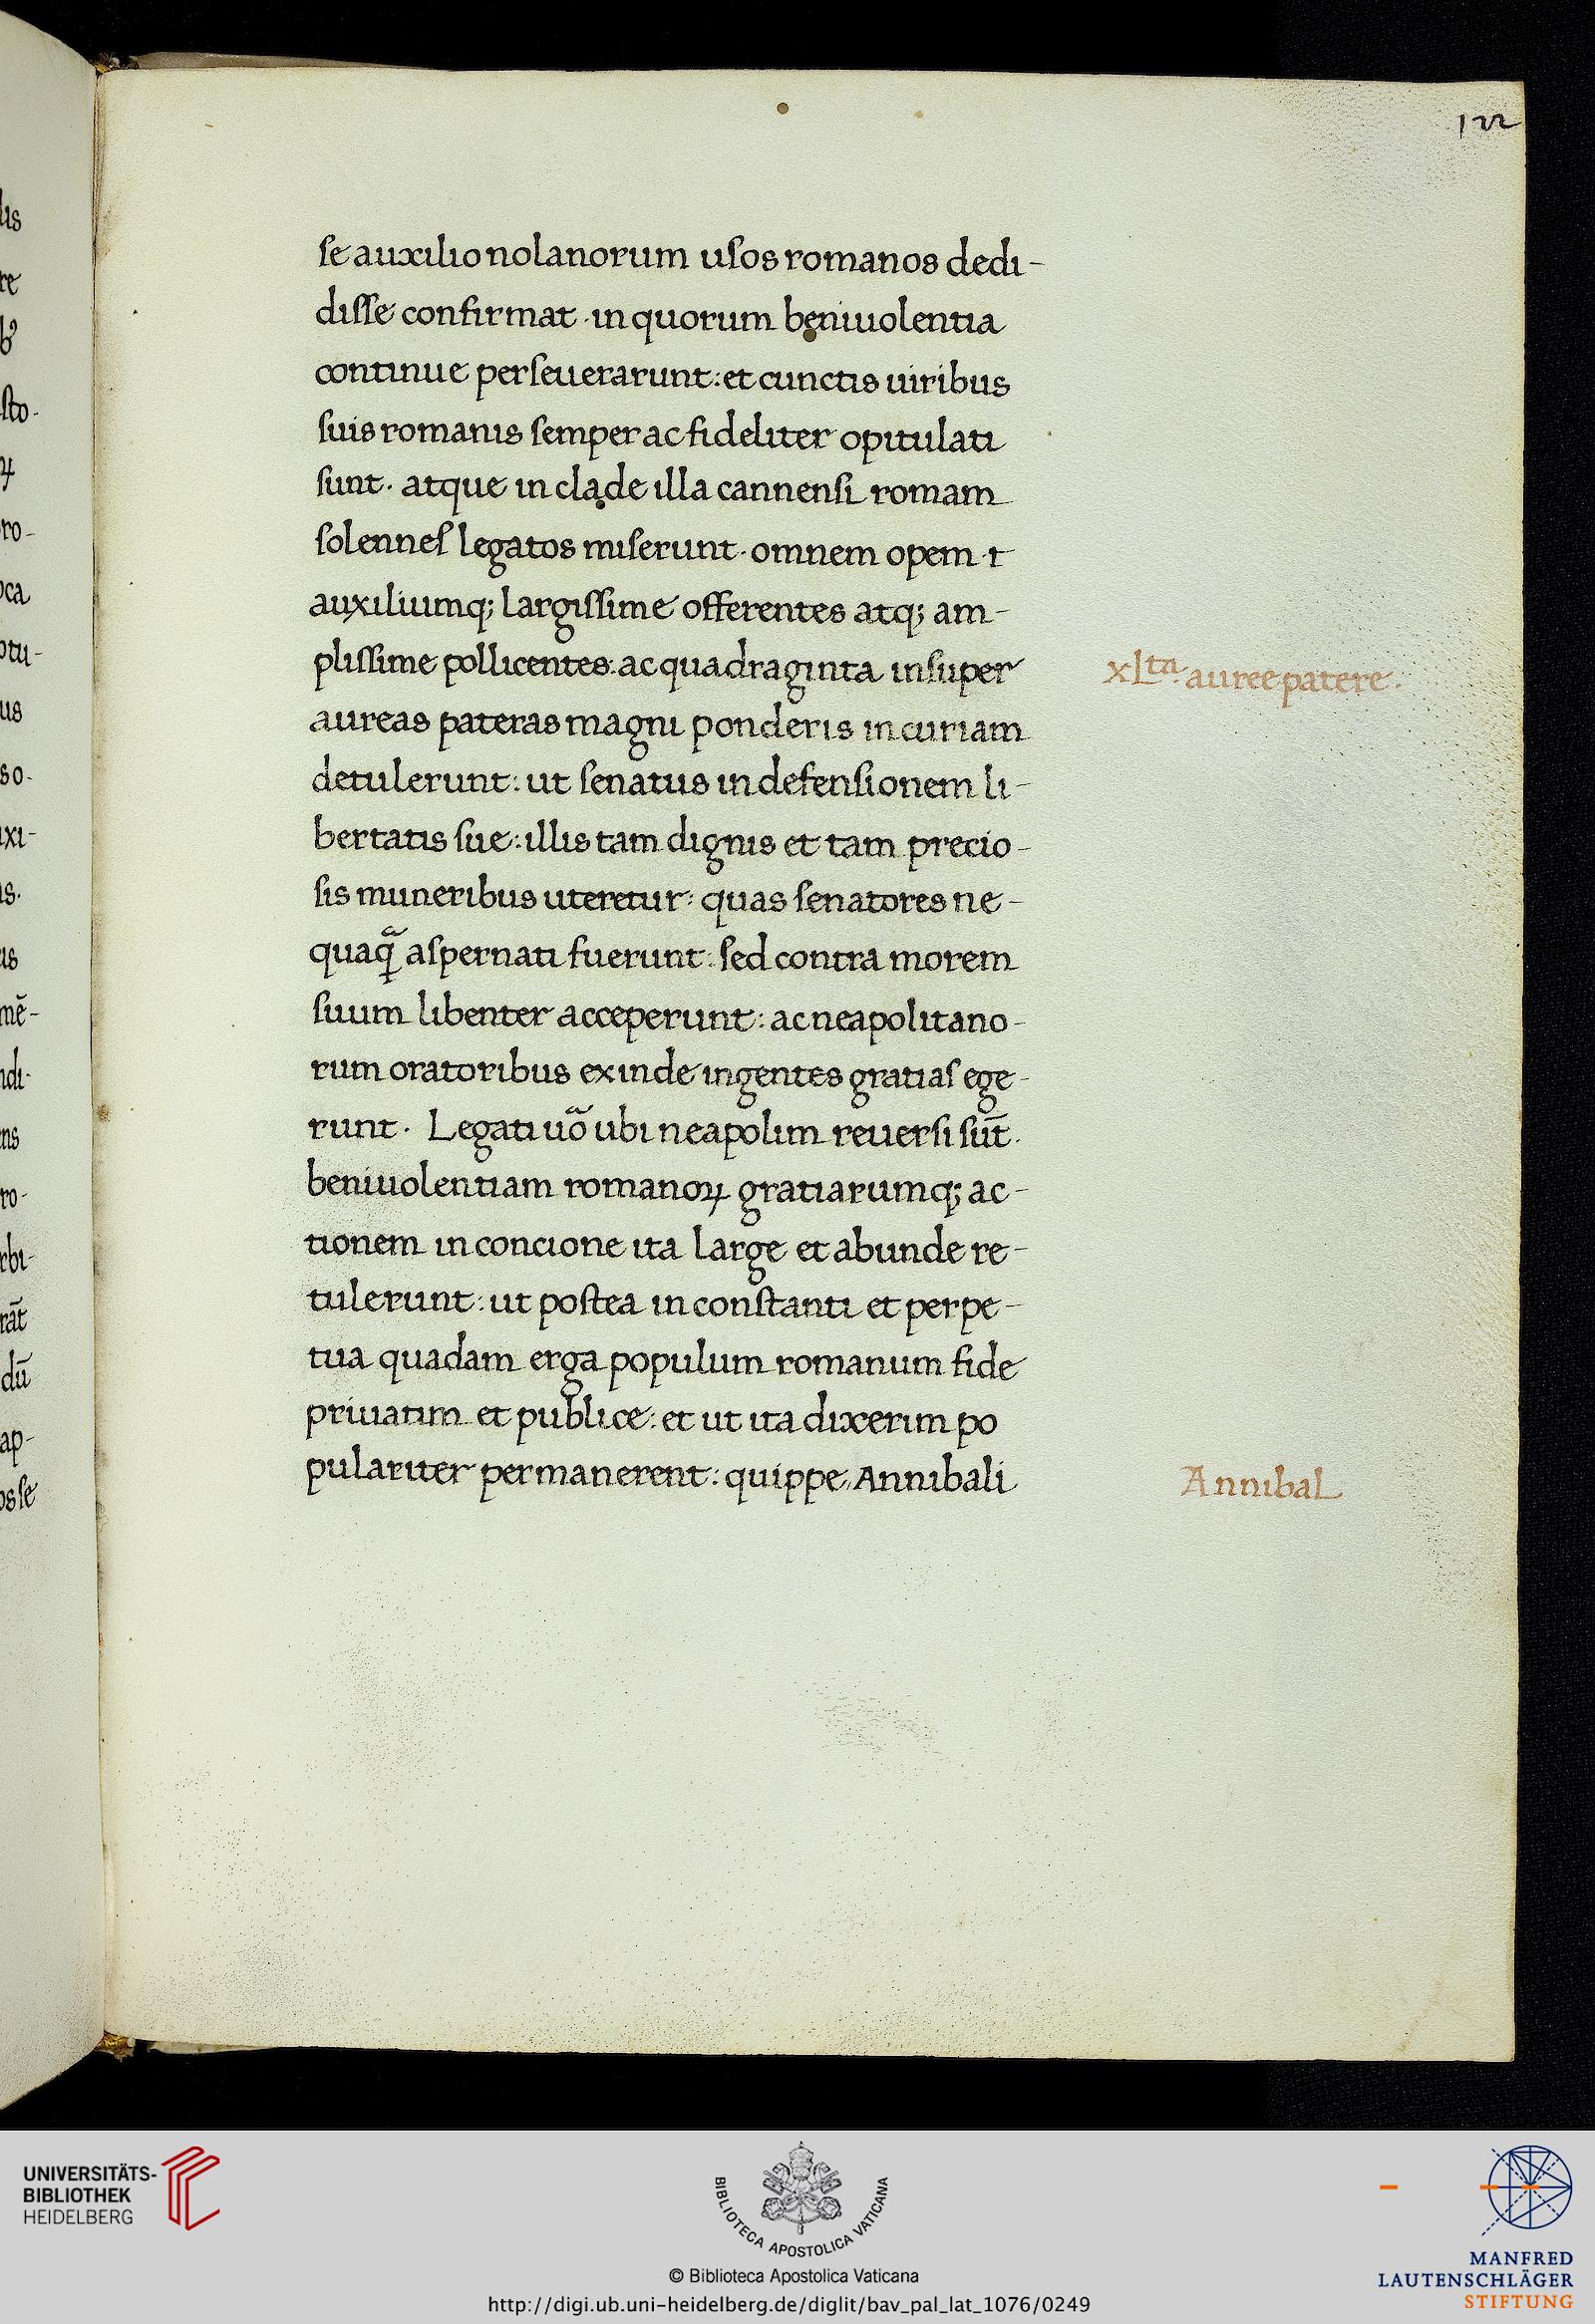 122
se auxilio nolanorum usos romanos dedi-
disse confirmat · in quorum beniuolentia
continue perseuerarunt: et cunctis uiribus
suis romanis semper ac fideliter opitulati
sunt. atque in clade illa cannensi romam
solennes legatos miserunt. omnem opem
auxiliumq; largissime offerentes atq; am-
plissime pollicentes: ac quadraginta insuper
xl.ta auree patere.
aureas pateras magni ponderis in curiam
detulerunt: ut senatus in defensionem li-
bertatis sue: illis tam dignis et tam precio-
sis muneribus uteretur: quas senatores ne-
quaq̃ aspernati fuerunt: sed contra morem
suum libenter acceperunt: ac neapolitano-
rum oratoribus exinde ingentes gratias ege-
runt. Legati uõ ubi neapolim reuersi sūt.
beniuolentiam romanoꝝ gratiarumq; ac-
tionem in concione ita large et abunde re-
tulerunt: ut postea in constanti et perpe-
tua quadam erga populum romanum fide
priuatim et publice: et ut ita dixerim po
pulariter permanerent: quippe Annibali
Annibal
lis
re
sto-
ro-
oca
otu-
us
so-
uxi-
is.
us
mē-
ndi-
ens
ro-
rbi-
rāt
dū
ap-
os se
UNIVERSITÄTS-
BIBLIOTHEK
HEIDELBERG
BIBLIOTECA APOSTOLICA VATICANA
© Biblioteca Apostolica Vaticana
http://digi.ub.uni-heidelberg.de/diglit/bav_pal_lat_1076/0249
MANFRED
LAUTENSCHLÄGER
STIFTUNG